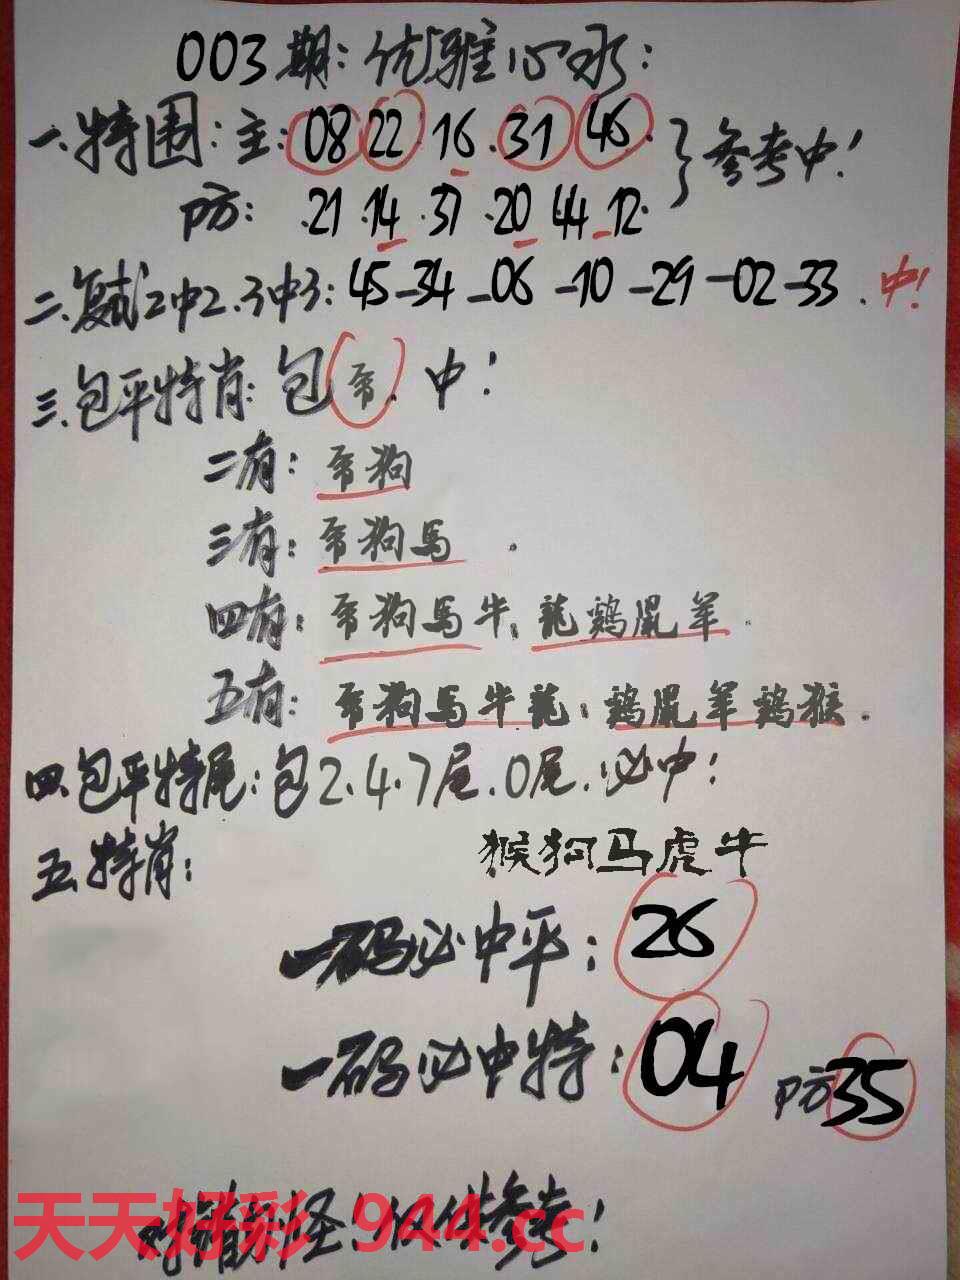 003期:优雅心水:
一.特围:主:08 22 16.31 46.}参考中!
防: .21 .14 .37 .20 44 .12.
二.复式2中2.3中3:45-34-06-10-29-02-33.中!
三.包平特肖:包帝.中!
二有:帝狗
三有:帝狗馬.
四有:帝狗馬牛,龍鷄鼠羊.
五有:帝狗馬牛龍,鷄鼠羊鷄猴.
四.包平特尾:包2.4.7尾.0尾.必中!
五.特肖:
猴狗马虎牛
一码必中平:26
一码必中特:04 防35
对错别怪!仅供参考!
天天好彩.944.cc